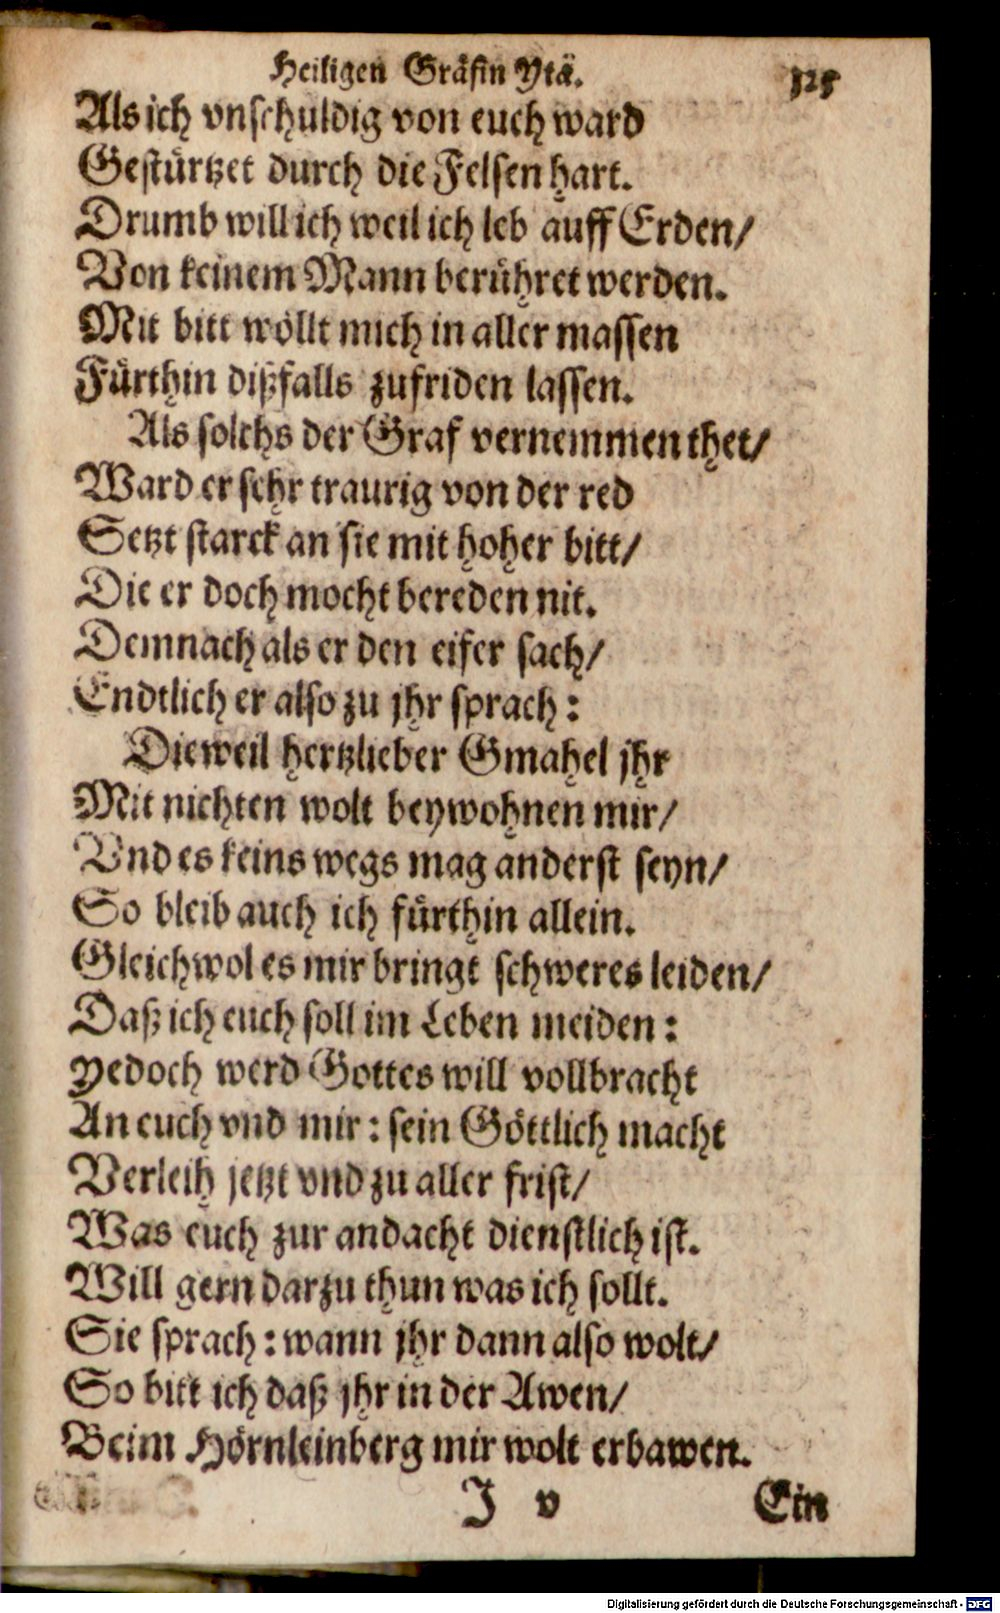 Heiligen Gräfin Ytä. 125
Als ich vnschuldig von euch ward
Gestürtzet durch die Felsen hart.
Drumb will ich weil ich leb auff Erden/
Von keinem Mann berühret werden.
Mit bitt wöllt mich in aller massen
Fürthin dißfalls zufriden lassen.
Als solchs der Graf vernemmen thet/
Ward er sehr traurig von der red
Setzt starck an sie mit hoher bitt/
Die er doch mocht bereden nit.
Demnach als er den eifer sach/
Endtlich er also zu jhr sprach:
Dieweil hertzlieber Gmahel jhr
Mit nichten wolt beywohnen mir/
Vnd es keins wegs mag anderst seyn/
So bleib auch ich fürthin allein.
Gleichwol es mir bringt schweres leiden/
Daß ich euch soll im Leben meiden:
Yedoch werd Gottes will vollbracht
An euch vnd mir: sein Göttlich macht
Verleih jetzt vnd zu aller frist/
Was euch zur andacht dienstlich ist.
Will gern darzu thun was ich sollt.
Sie sprach: wann jhr dann also wolt/
So bitt ich daß jhr in der Awen/
Beim Hörnleinberg mir wolt erbawen.
J v Ein
Digitalisierung gefördert durch die Deutsche Forschungsgemeinschaft - DFG